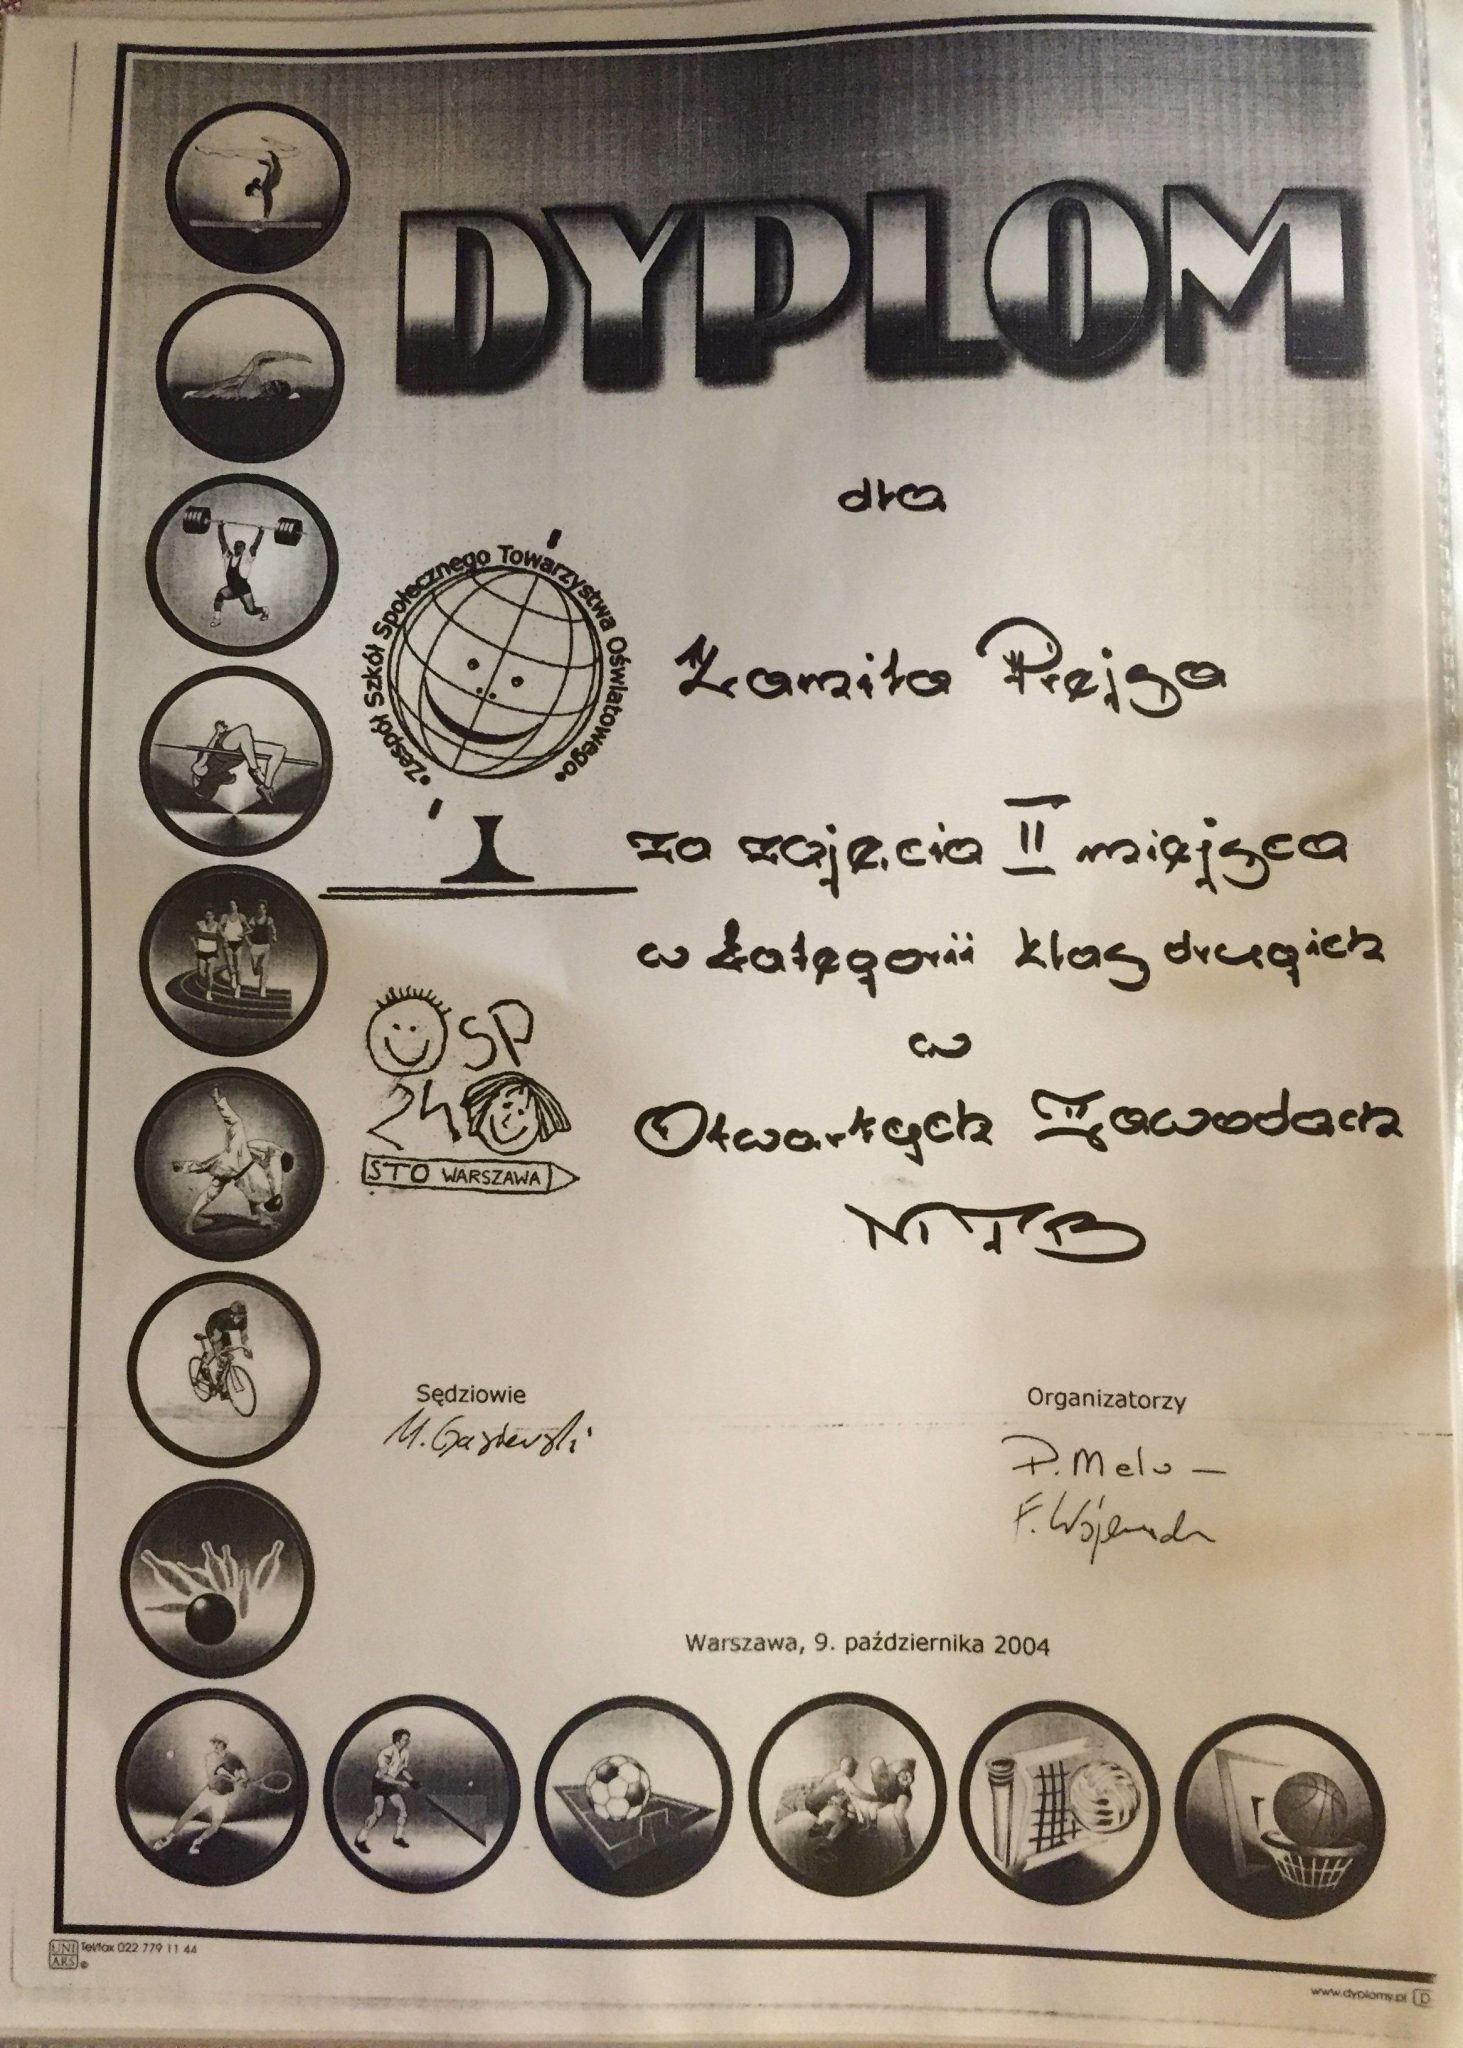 DYPLOM
dla
•Zespół Szkół Społecznego Towarzystwa Oświatowego•
Kamila Prejsa
za zajęcia II miejsca
w kategorii klas drugich
w
Otwartych Zawodach
MTB
SP
24
STO WARSZAWA
Sędziowie
Organizatorzy
P. Melo
Warszawa, 9. października 2004
UNI ARS © Tel/fax 022 779 11 44
www.dyplomy.pl